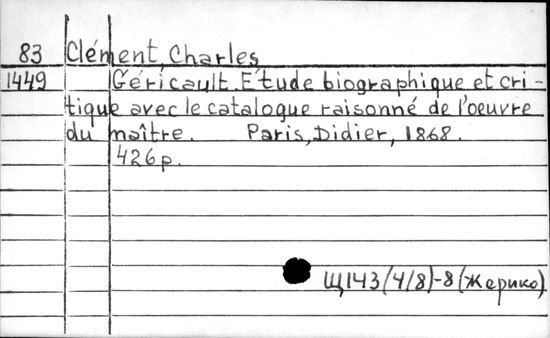 83 Clément, Charles
1449 Géricault. Étude biographique et cri-
tique avec le catalogue raisonné de l'oeuvre
du maître. Paris, Didier, 1868.
426p.
Щ143(4/8)-8(Жерико)